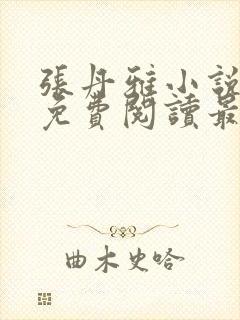 張丹雅小說
免費閱讀最
曲木史哈